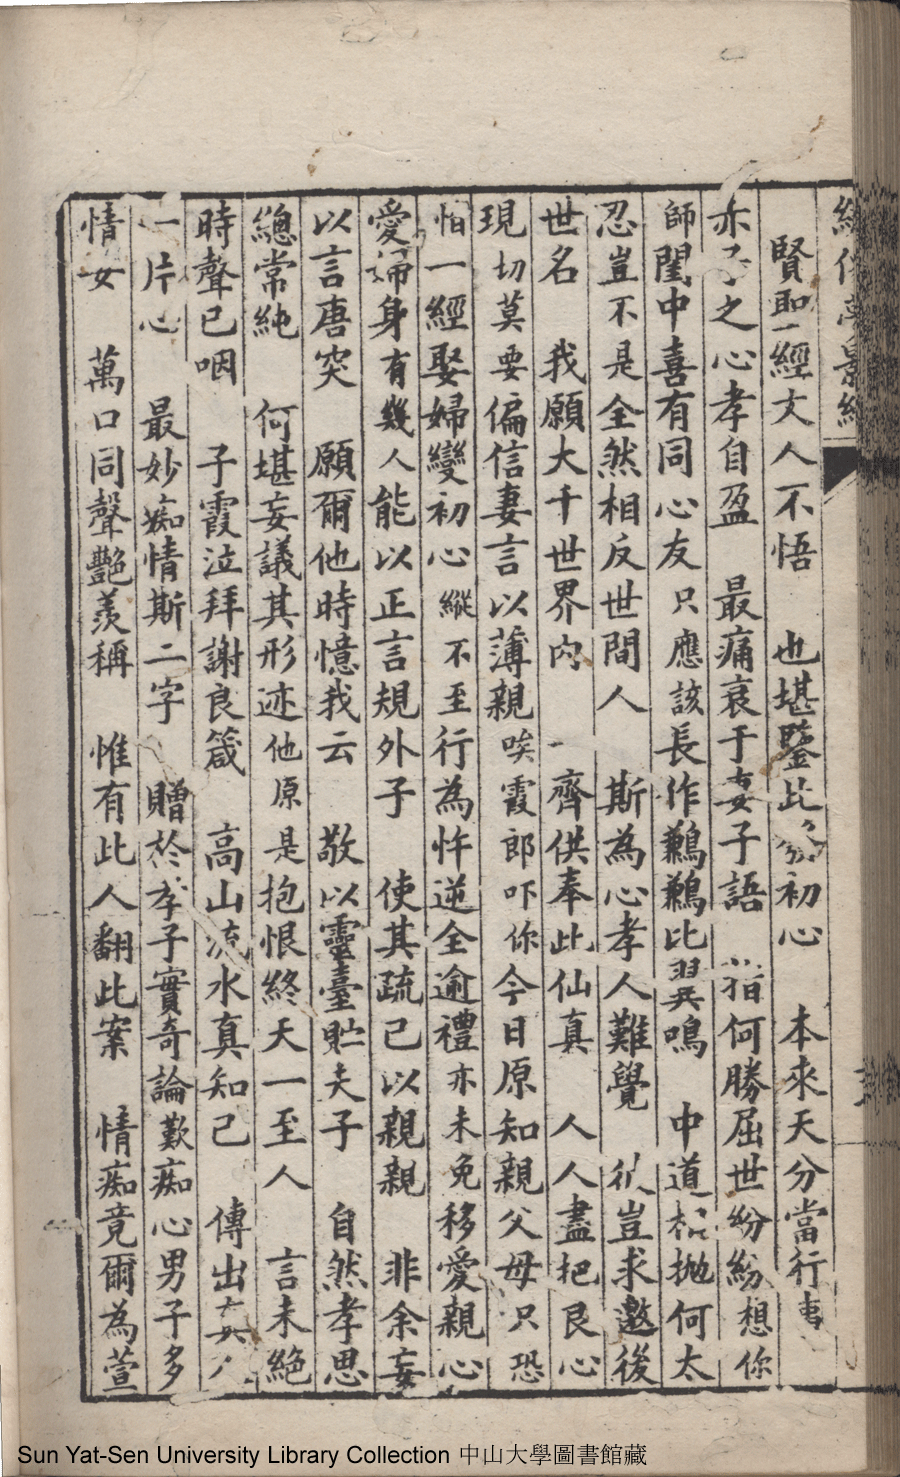 賢聖經文人不悟　也堪鑒此初心　本來天分當行事
亦子之心孝自盈　最痛衰于妻子語　指何勝屈世紛紛想你
師閨中喜有同心友只應該長作鶼鶼比翼鳴　中道相拋何太
忍豈不是全然相反世間人　斯為心孝人難覺　豈求邀後
世名　我願大千世界內　一齊供奉此仙真　人人盡把良心
現切莫要偏信妻言以薄親唉霞郎吓你今日原知親父母只恐
怕一經娶婦變初心縱不至行為忤逆全逾禮亦未免移愛親心
愛婦身有幾人能以正言規外子　使其疏己以親親　非余妄
以言唐突　願爾他時憶我云　敬以靈臺貯夫子　自然孝思
總常純　何堪妄議其形迹他原是抱恨終天一至人　言未絕
時聲已咽　子霞泣拜謝良箴　高山流水真知己　傳出
一片心　最妙痴情斯二字　贈於孝子實奇論歎痴心男子多
情女　萬口同聲艷羨稱　惟有此人翻此案　情痴竟爾為萱
Sun Yat-Sen University Library Collection 中山大學圖書館藏